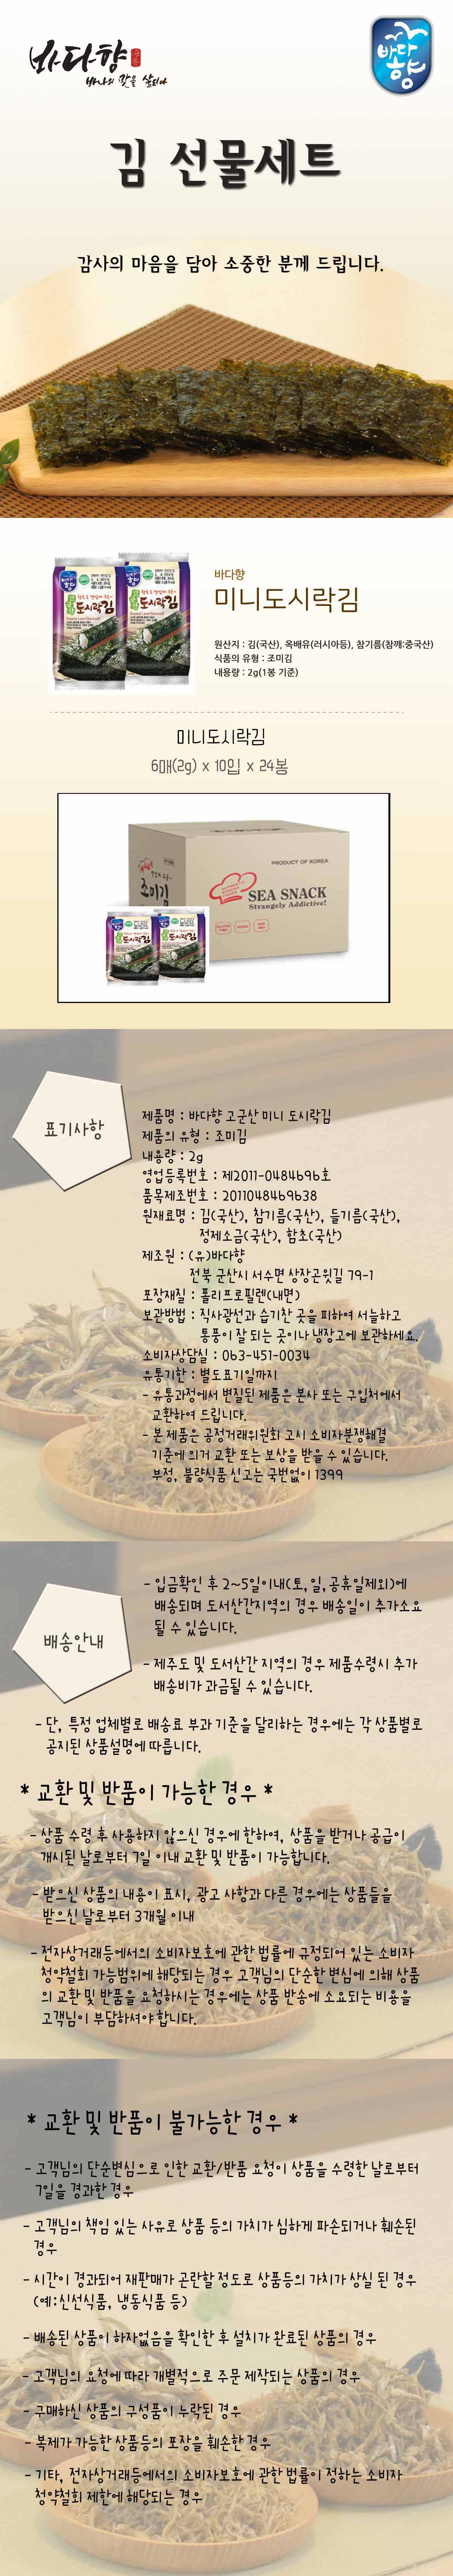 바다향
바다의 맛을 살리다
바다향
김 선물세트
감사의 마음을 담아 소중한 분께 드립니다.
바다향
미니도시락김
원산지 : 김(국산), 옥배유(러시아등), 참기름(참깨:중국산)
식품의 유형 : 조미김
내용량 : 2g(1봉 기준)
도시락김
도시락김
미니도시락김
6매(2g) x 10입 x 24봉
PRODUCT OF KOREA
조미김
SEA SNACK
Strangely Addictive!
도시락김
도시락김
표기사항
제품명 : 바다향 고군산 미니 도시락김
제품의 유형 : 조미김
내용량 : 2g
영업등록번호 : 제2011-0484696호
품목제조번호 : 2011048469638
원재료명 : 김(국산), 참기름(국산), 들기름(국산),
정제소금(국산), 함초(국산)
제조원 : (유)바다향
전북 군산시 서수면 상장곤윗길 79-1
포장재질 : 폴리프로필렌(내면)
보관방법 : 직사광선과 습기찬 곳을 피하여 서늘하고
통풍이 잘 되는 곳이나 냉장고에 보관하세요.
소비자상담실 : 063-451-0034
유통기한 : 별도표기일까지
- 유통과정에서 변질된 제품은 본사 또는 구입처에서
교환하여 드립니다.
- 본 제품은 공정거래위원회 고시 소비자분쟁해결
기준에 의거 교환 또는 보상을 받을 수 있습니다.
부정, 불량식품 신고는 국번없이 1399
배송안내
- 입금확인 후 2~5일이내(토,일,공휴일제외)에
배송되며 도서산간지역의 경우 배송일이 추가소요
될 수 있습니다.
- 제주도 및 도서산간 지역의 경우 제품수령시 추가
배송비가 과금될 수 있습니다.
- 단, 특정 업체별로 배송료 부과 기준을 달리하는 경우에는 각 상품별로
공지된 상품설명에 따릅니다.
* 교환 및 반품이 가능한 경우 *
- 상품 수령 후 사용하지 않으신 경우에 한하여, 상품을 받거나 공급이
개시된 날로부터 7일 이내 교환 및 반품이 가능합니다.
- 받으신 상품의 내용이 표시, 광고 사항과 다른 경우에는 상품들을
받으신 날로부터 3개월 이내
- 전자상거래등에서의 소비자보호에 관한 법률에 규정되어 있는 소비자
청약철회 가능범위에 해당되는 경우 고객님의 단순한 변심에 의해 상품
의 교환 및 반품을 요청하시는 경우에는 상품 반송에 소요되는 비용을
고객님이 부담하셔야 합니다.
* 교환 및 반품이 불가능한 경우 *
- 고객님의 단순변심으로 인한 교환/반품 요청이 상품을 수령한 날로부터
7일을 경과한 경우
- 고객님의 책임 있는 사유로 상품 등의 가치가 심하게 파손되거나 훼손된
경우
- 시간이 경과되어 재판매가 곤란할 정도로 상품등의 가치가 상실 된 경우
(예:신선식품, 냉동식품 등)
- 배송된 상품이 하자없음을 확인한 후 설치가 완료된 상품의 경우
- 고객님의 요청에 따라 개별적으로 주문 제작되는 상품의 경우
- 구매하신 상품의 구성품이 누락된 경우
- 복제가 가능한 상품등의 포장을 훼손한 경우
- 기타, 전자상거래등에서의 소비자보호에 관한 법률이 정하는 소비자
청약철회 제한에 해당되는 경우